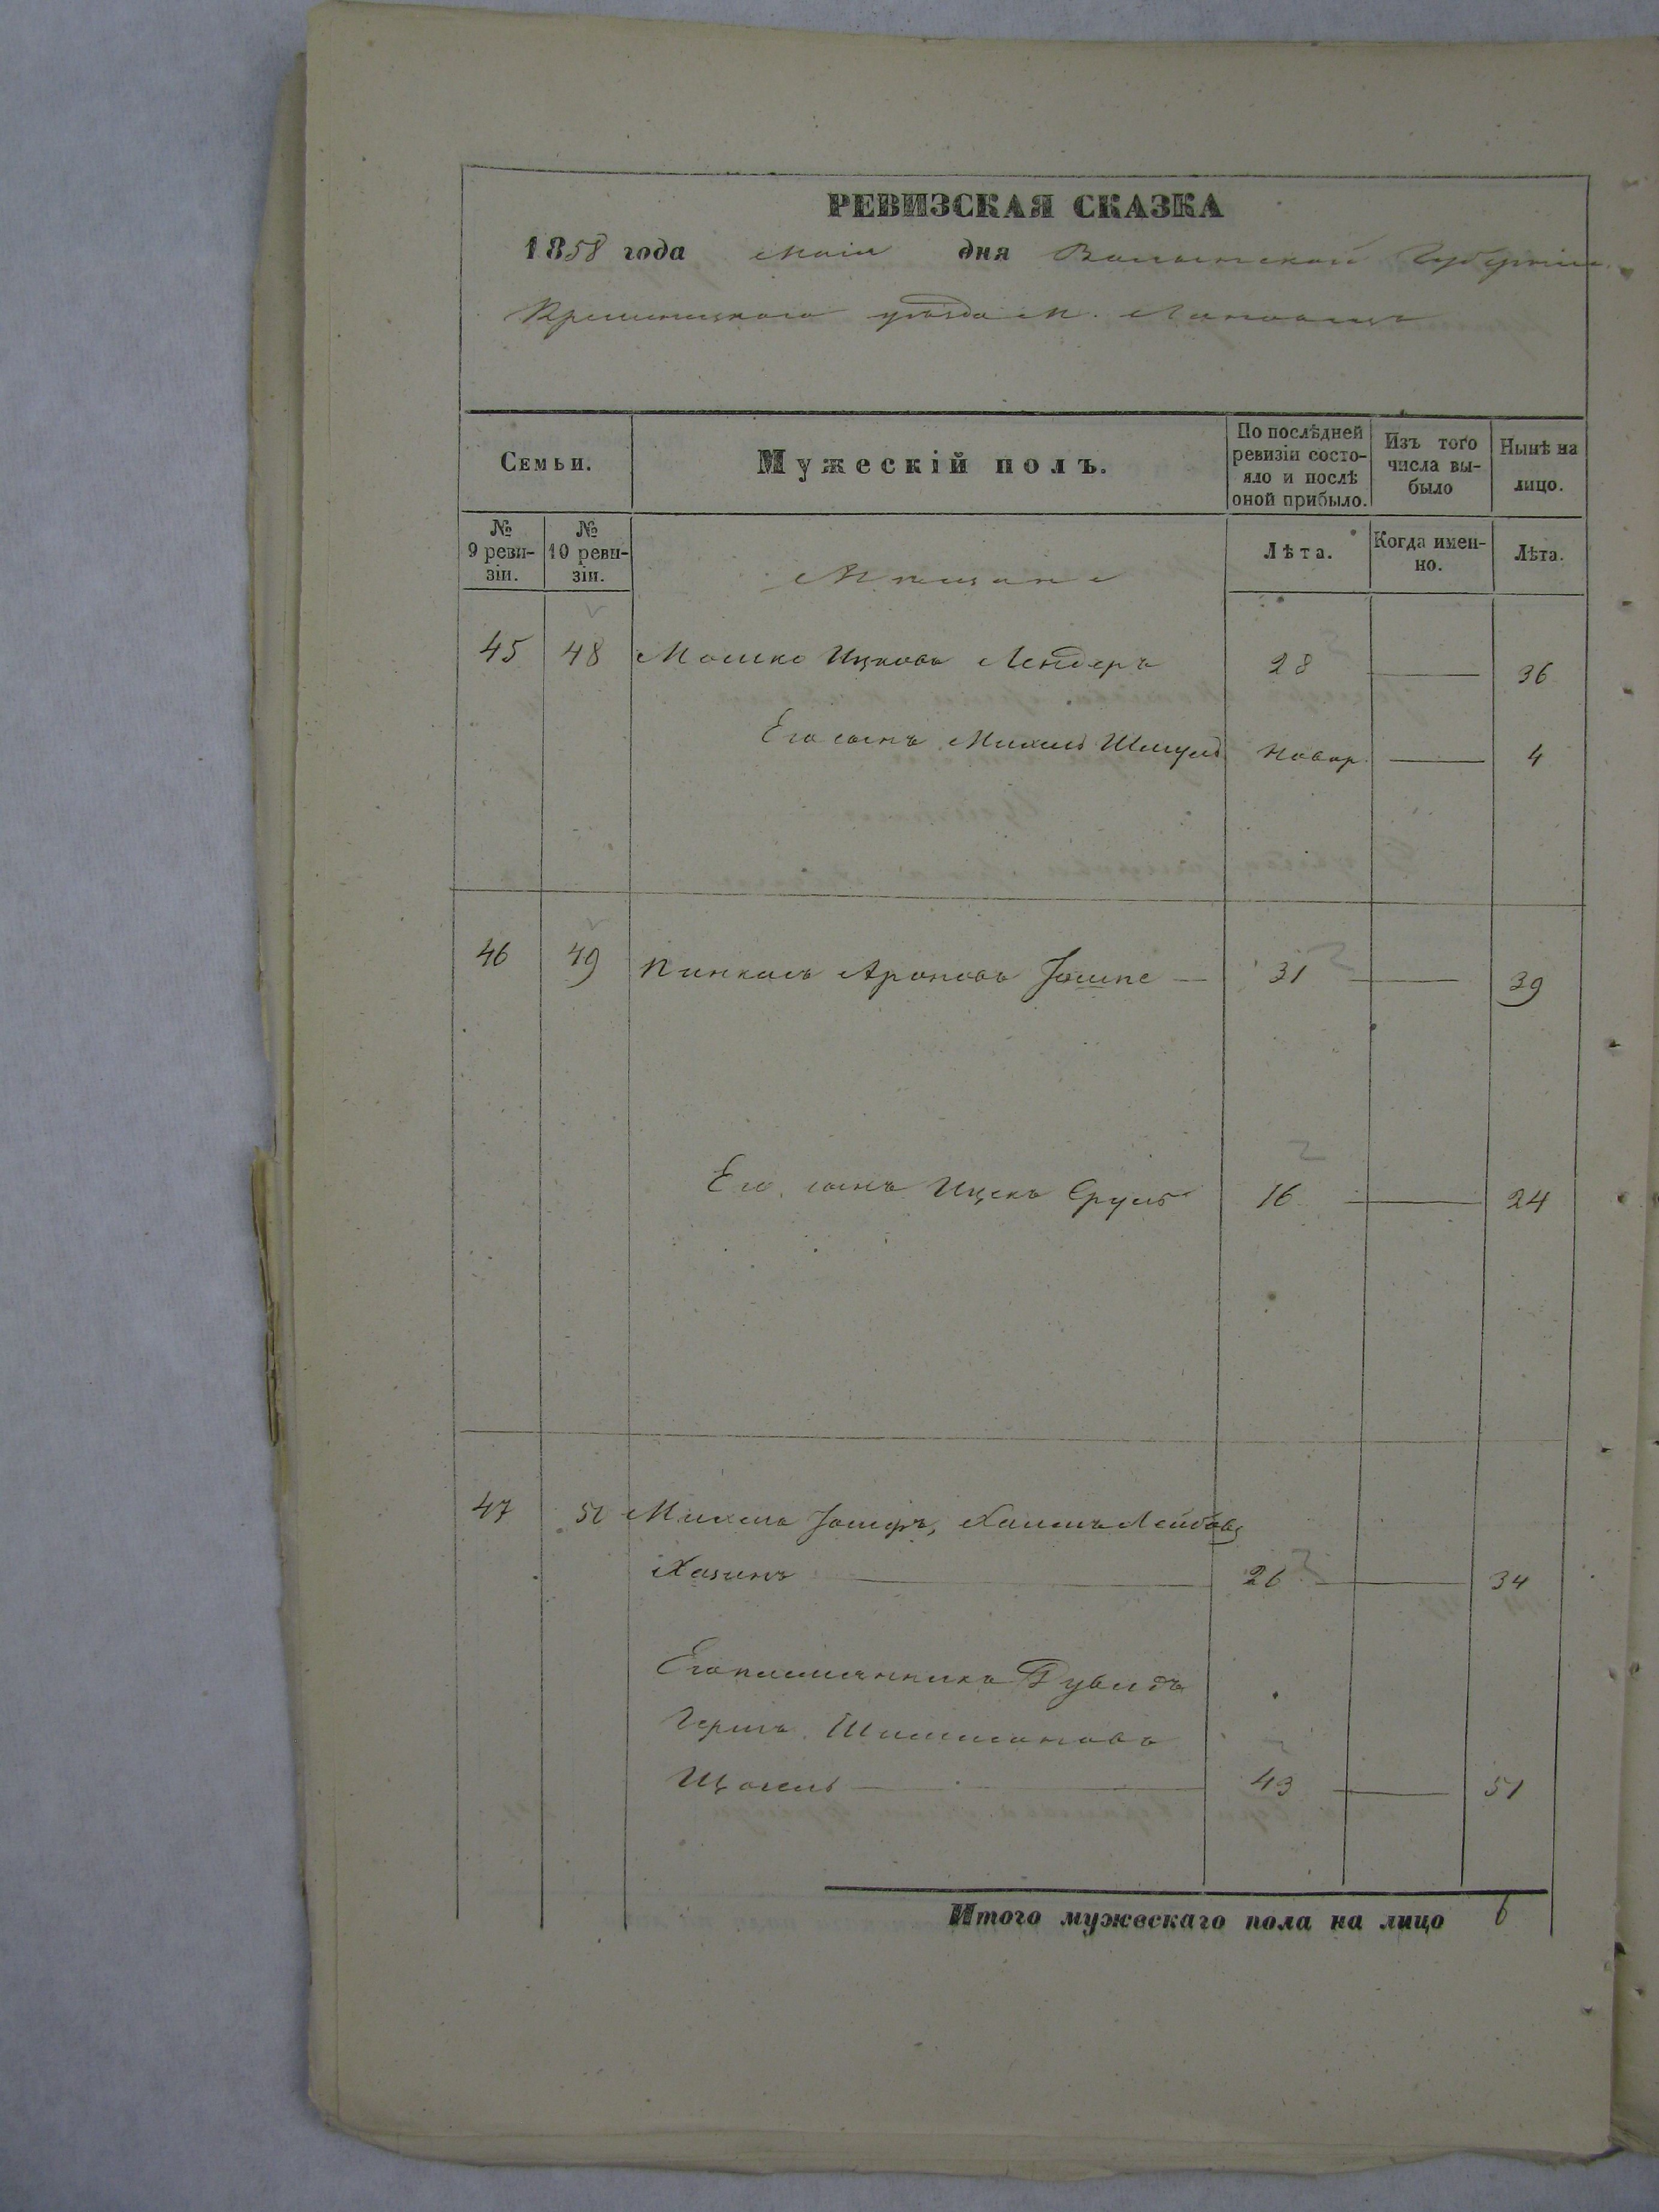 РЕВИЗСКАЯ СКАЗКА
1858 года маія дня Волынской Губерніи
Кременецкаго уѣзда м. Лановецъ
Семьи.
Мужескій полъ.
По послѣдней ревизіи состояло и послѣ оной прибыло.
Изъ того числа выбыло
Нынѣ на лицо.
№ 9 ревизіи.
№ 10 ревизіи.
Мѣщане
Лѣта.
Когда именно.
Лѣта.
45 48 Мошко Ицковъ Лендеръ 28 36
Его сынъ Михель Шмуль Новор. 4
46 49 Пинкасъ Ароновъ 31 39
Его сынъ Ицекъ Сруль 16 24
47 Михель Хаимъ Лейбовъ
Хазинъ 26 34
Его племянникъ Дувидъ
Гершъ
43 51
Итого мужескаго пола на лицо 6